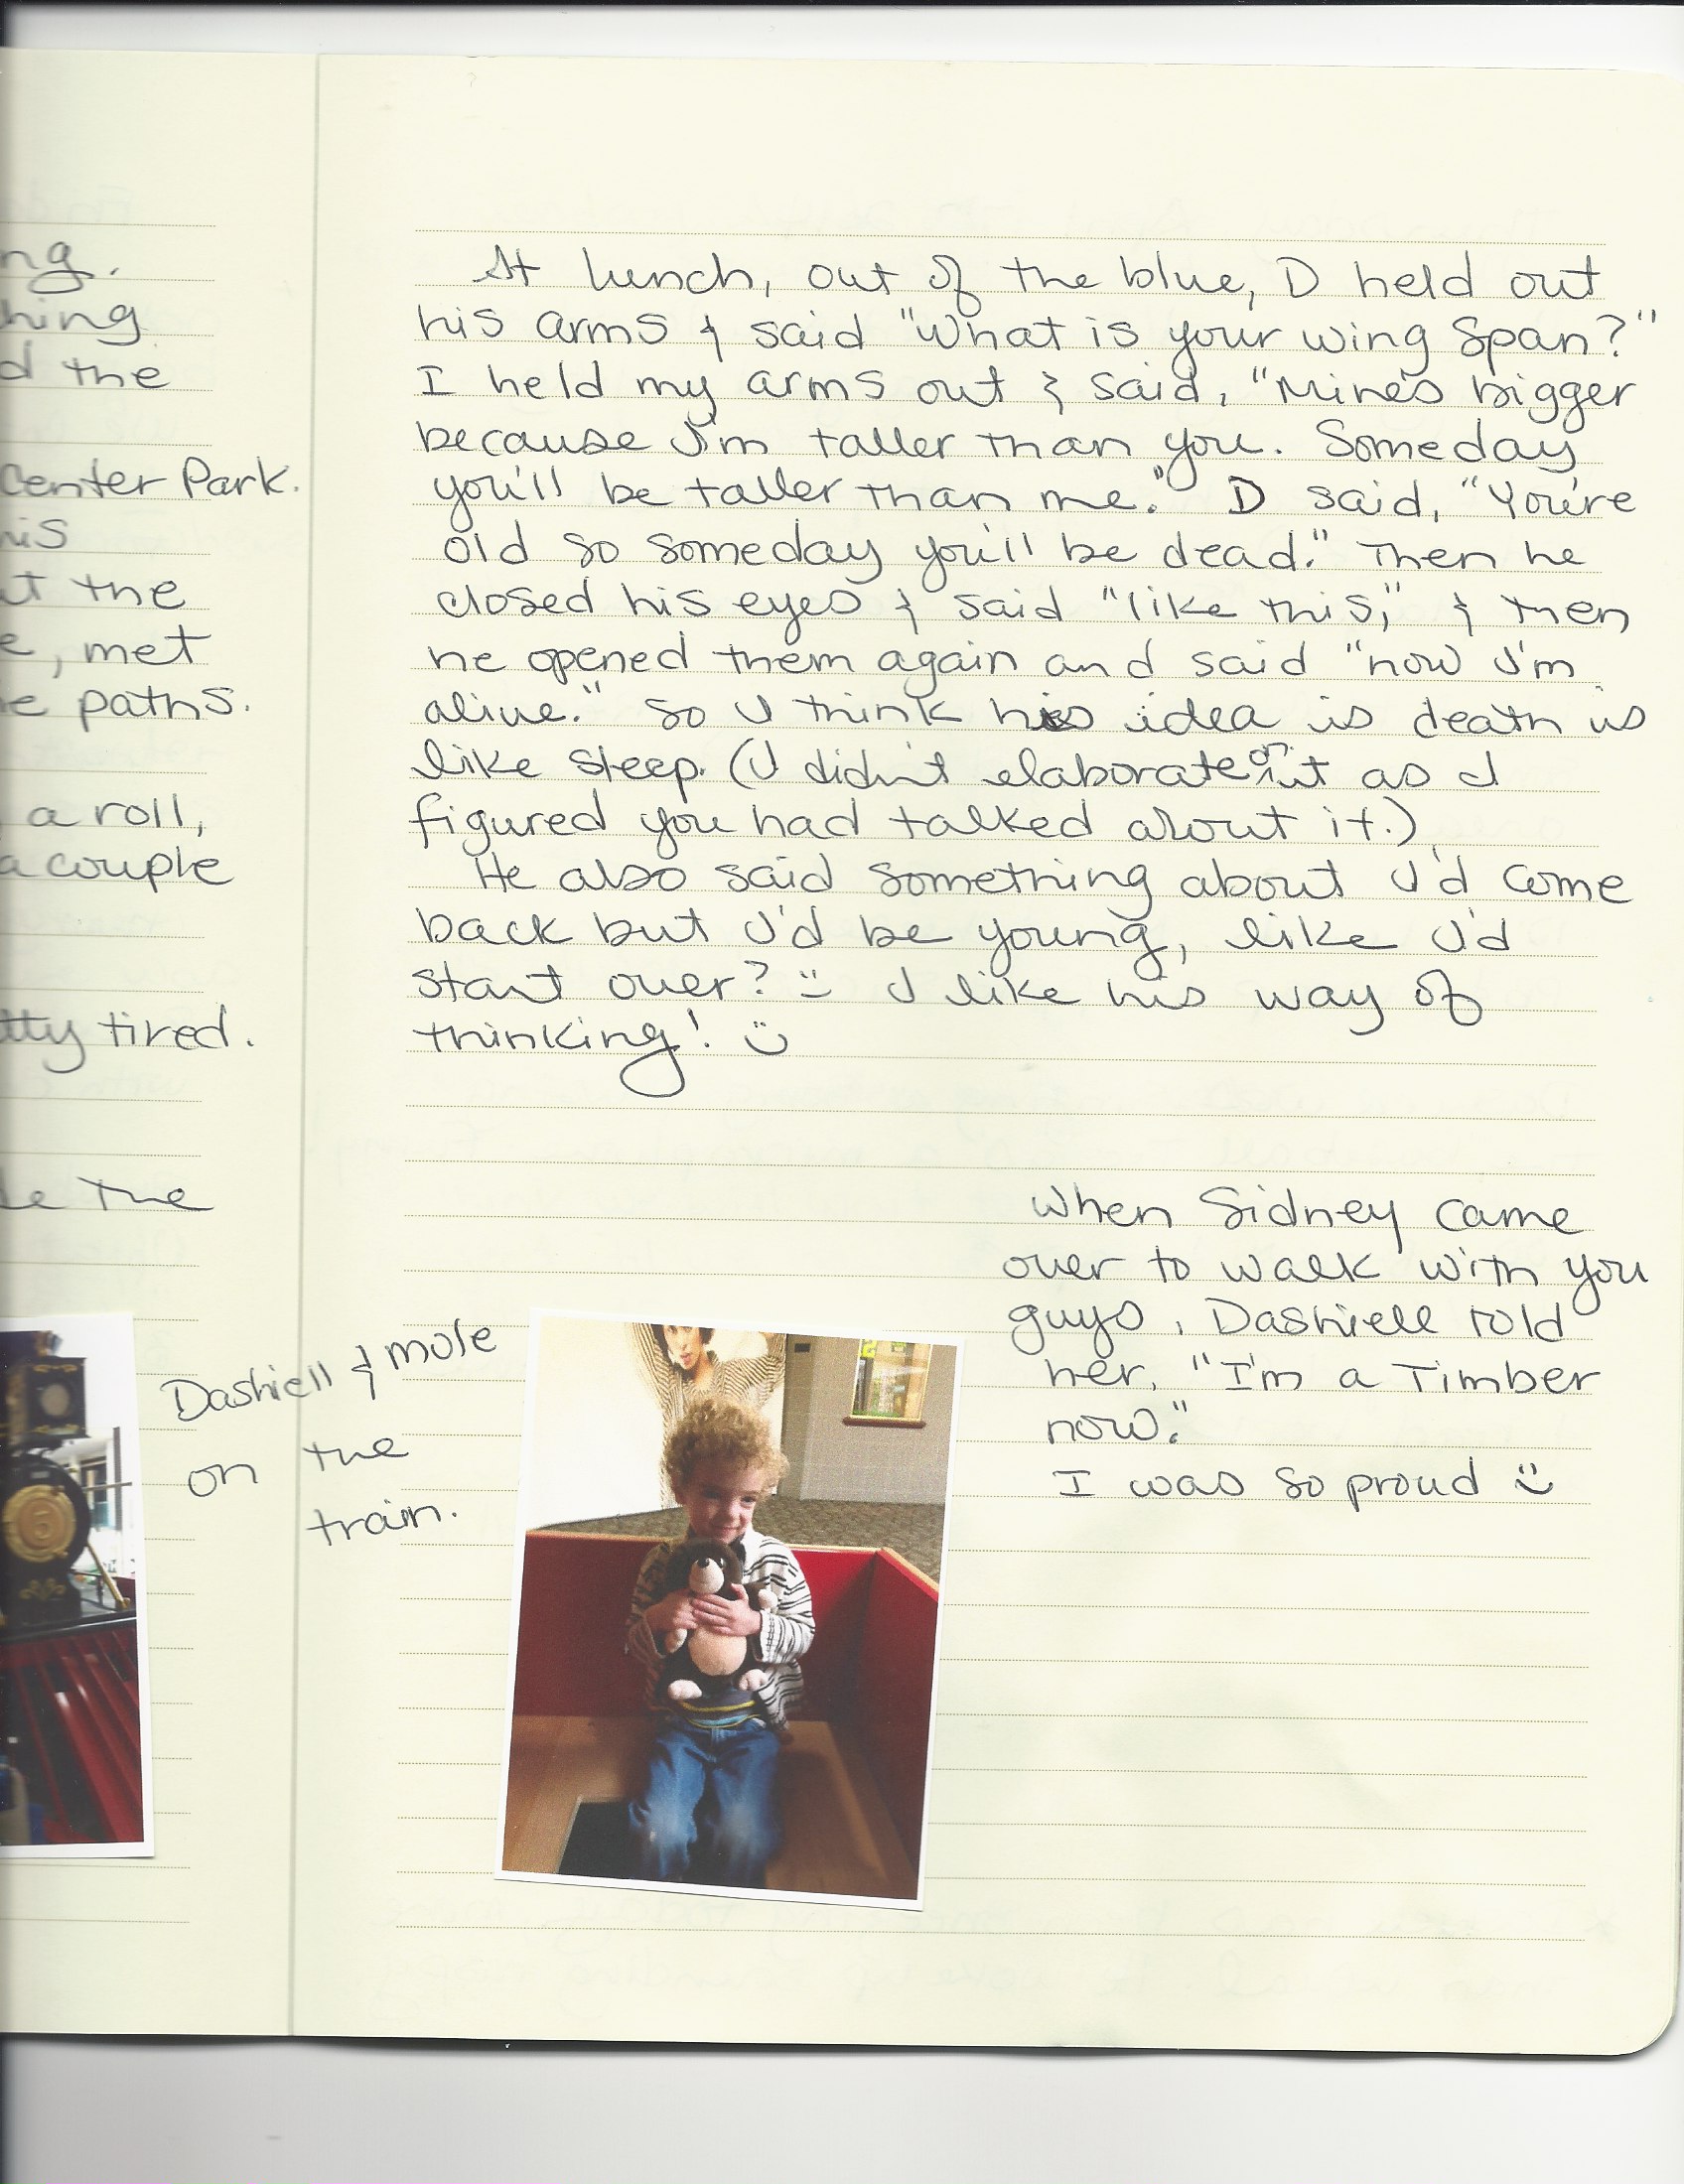 ng.
hing
d the
Center Park.
his
ut the
e, met
he paths.
a roll,
a couple
tty tired.
le the
At lunch, out of the blue, D held out
his arms & said "What is your wing span?"
I held my arms out & said, "Mine's bigger
because I'm taller than you. Someday
you'll be taller than me." D said, "You're
old so someday you'll be dead." Then he
closed his eyes & said "like this," & then
he opened them again and said "now I'm
alive." So I think his idea is death is
like sleep. (I didn't elaborate on it as I
figured you had talked about it.)
He also said something about I'd come
back but I'd be young, like I'd
start over? :) I like his way of
thinking! :)
When Sidney came
over to walk with you
guys, Dashiell told
her, "I'm a Timber
now."
I was so proud :)
Dashiell & mole
on the
train.
5